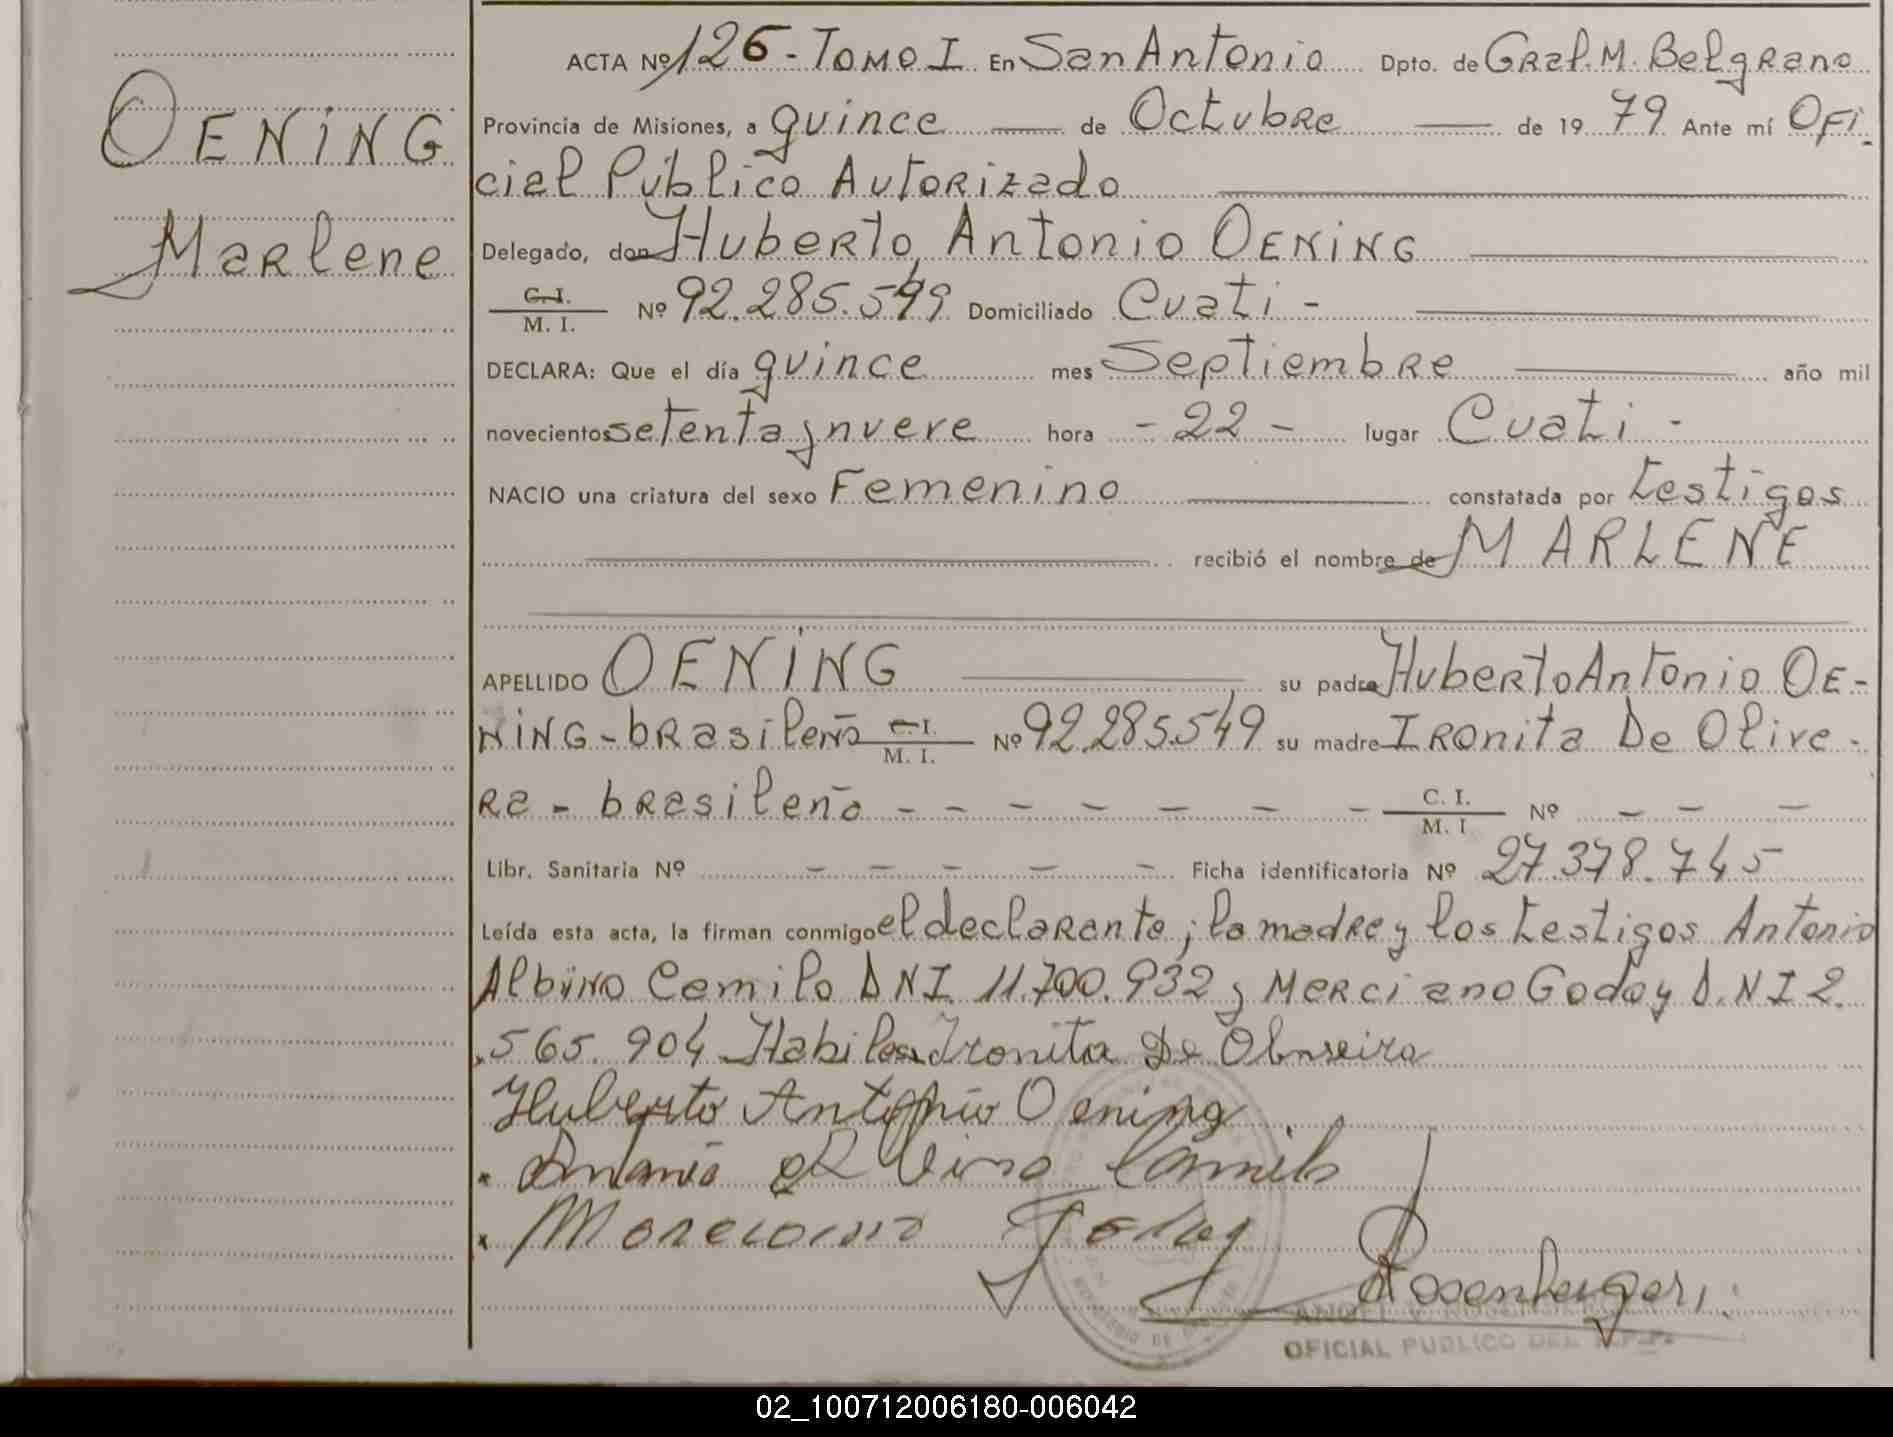 OENING
Marlene
ACTA Nº 126 - TOMO I En San Antonio Dpto. de Gral. M. Belgrano
Provincia de Misiones, a quince de Octubre de 19 79 Ante mí Ofi-
cial Público Autorizado
Delegado, don Huberto Antonio OENING
C. I.
M. I. Nº 92.285.549 Domiciliado Cuati -
DECLARA: Que el día quince mes Septiembre año mil
novecientos setenta y nueve hora - 22 - lugar Cuati -
NACIO una criatura del sexo Femenino constatada por testigos
recibió el nombre de MARLENE
APELLIDO OENING su padre Huberto Antonio OE-
NING - brasileño C. I. M. I. Nº 92.285.549 su madre Ironita De Olive-
ra - brasileña - - - - - - - C. I. M. I Nº - - -
Libr. Sanitaria Nº - - - - - Ficha identificatoria Nº 27.378.745
Leída esta acta, la firman conmigo el declarante, la madre y los testigos Antonio
Albino Camilo DNI 11.700.932 y Merciano Godoy D.NI 2.
565.904 Habiles Ironita De Oliveira
Huberto Antonio Oening
Antonio Albino Camilo
Godoy
Rosenberger
OFICIAL PUBLICO DEL R.P.P.
02_100712006180-006042